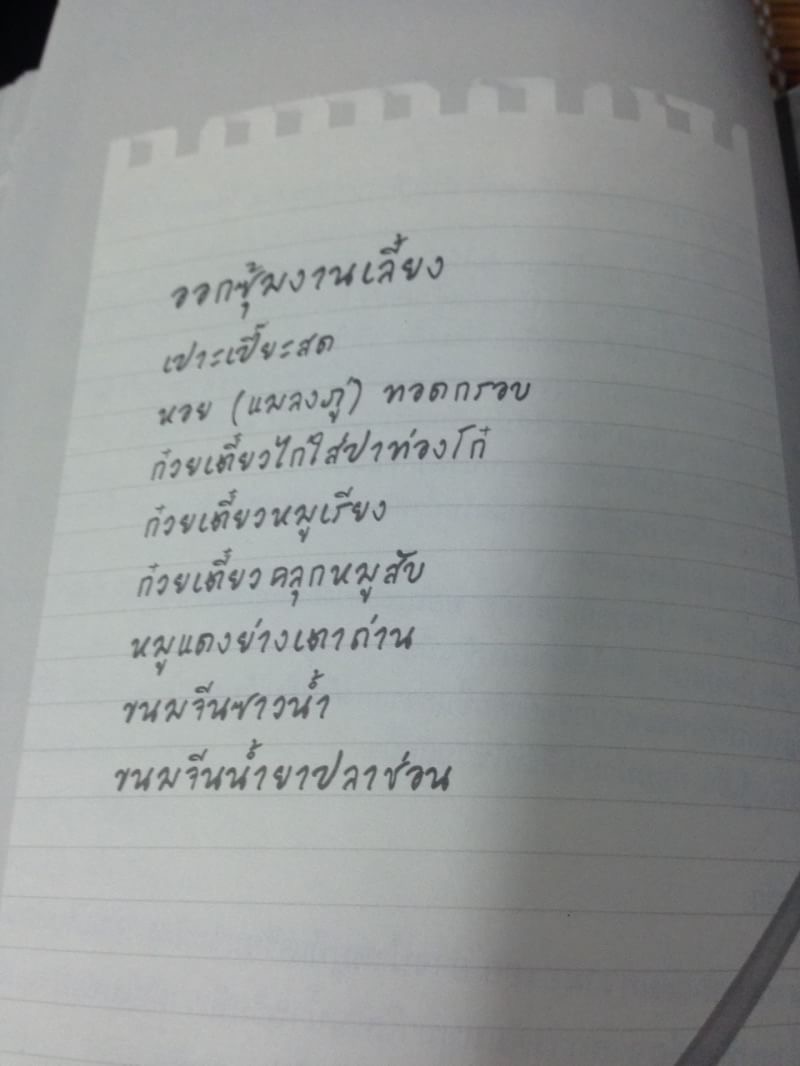 ออกซุ้มงานเลี้ยง
เปาะเปี๊ยะสด
หอย (แมลงภู่) ทอดกรอบ
ก๋วยเตี๋ยวไก่ใส่ปาท่องโก๋
ก๋วยเตี๋ยวหมูเรียง
ก๋วยเตี๋ยวคลุกหมูสับ
หมูแดงย่างเตาถ่าน
ขนมจีนซาวน้ำ
ขนมจีนน้ำยาปลาช่อน